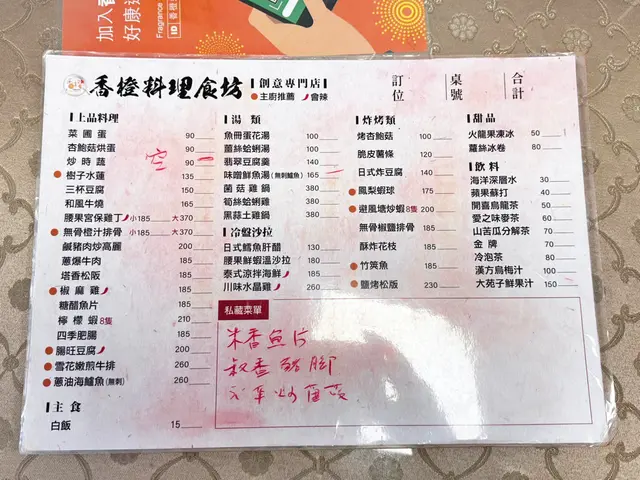 加入香
好康
Fragrance
ID 香橙
香橙料理食坊
創意專門店
主廚推薦 會辣
訂位
桌號
合計
上品料理
菜圃蛋 90
杏鮑菇烘蛋 90
炒時蔬 90
樹子水蓮 135
三杯豆腐 150
和風牛燒 150
腰果宮保雞丁 小185 大370
無骨橙汁排骨 小185 大370
鹹豬肉炒高麗 200
蔥爆牛肉 185
塔香松阪 185
椒麻雞 185
糖醋魚片 185
檸檬蝦8隻 210
四季肥腸 185
腸旺豆腐 200
雪花嫩煎牛排 260
蔥油海鱸魚(無刺) 260
主食
白飯 15
湯類
魚冊蛋花湯 100
薑絲蛤蜊湯 100
翡翠豆腐羹 130
味噌鮮魚湯(無刺鱸魚) 165
菌菇雞鍋 350
筍絲蛤蜊雞 350
黑蒜土雞鍋 350
冷盤沙拉
日式鱈魚肝醋 130
腰果鮮蝦溫沙拉 180
泰式涼拌海鮮 185
川味水晶雞 240
炸烤類
烤杏鮑菇 100
脆皮薯條 100
日式炸豆腐 140
鳳梨蝦球 175
避風塘炒蝦8隻 200
無骨椒鹽排骨 185
酥炸花枝 185
竹筴魚 185
鹽烤松阪 230
甜品
火龍果凍冰 50
蘿絲冰卷 80
飲料
海洋深層水 30
蘋果蘇打 40
開喜烏龍茶 50
愛之味麥茶 60
山苦瓜分解茶 60
金牌 70
冷泡茶 80
漢方烏梅汁 100
大苑子鮮果汁 150
私藏菜單
魚片
香豬腳